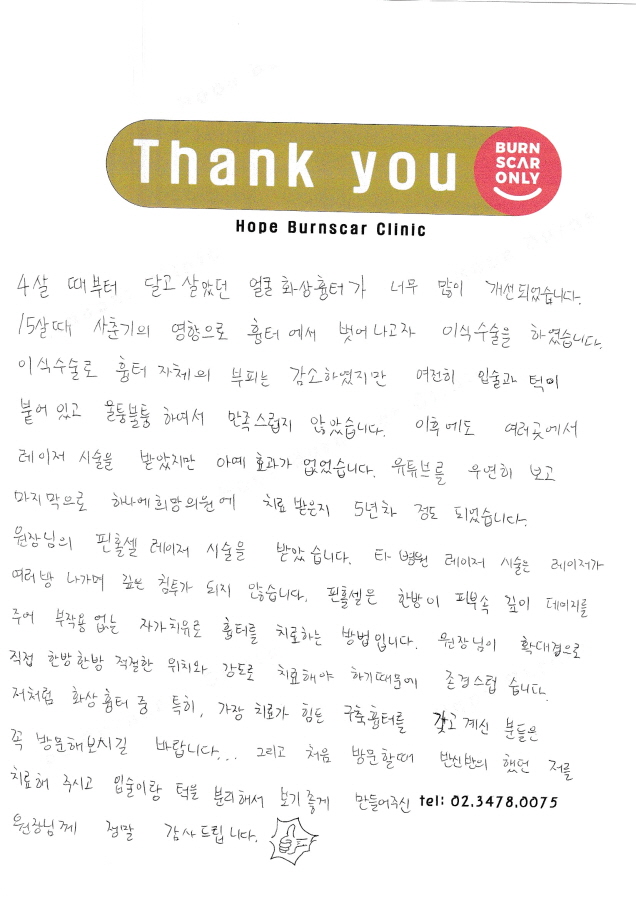 Thank you
BURN
SCAR
ONLY
Hope Burnscar Clinic
4살 때부터 달고 살았던 얼굴 화상흉터가 너무 많이 개선되었습니다.
15살때 사춘기의 영향으로 흉터에서 벗어나고자 이식수술을 하였습니다.
이식수술로 흉터 자체의 부피는 감소하였지만 여전히 입술과 턱이
붙어 있고 울퉁불퉁 하여서 만족스럽지 않았습니다. 이후에도 여러곳에서
레이저 시술을 받았지만 아예 효과가 없었습니다. 유튜브를 우연히 보고
마지막으로 하나에희망의원에 치료 받은지 5년차 정도 되었습니다.
원장님의 핀홀셀 레이저 시술을 받았습니다. 타 병원 레이저 시술은 레이저가
여러방 나가며 깊은 침투가 되지 않습니다. 핀홀셀은 한방이 피부속 깊이 데미지를
주어 부작용 없는 자가치유로 흉터를 치료하는 방법입니다. 원장님이 확대경으로
직접 한방한방 적절한 위치와 강도로 치료해야 하기때문에 존경스럽습니다.
저처럼 화상흉터 중 특히, 가장 치료가 힘든 구축흉터를 갖고 계신 분들은
꼭 방문해보시길 바랍니다... 그리고 처음 방문할때 반신반의 했던 저를
치료해 주시고 입술이랑 턱을 분리해서 보기좋게 만들어주신
tel: 02.3478.0075
원장님께 정말 감사드립니다.